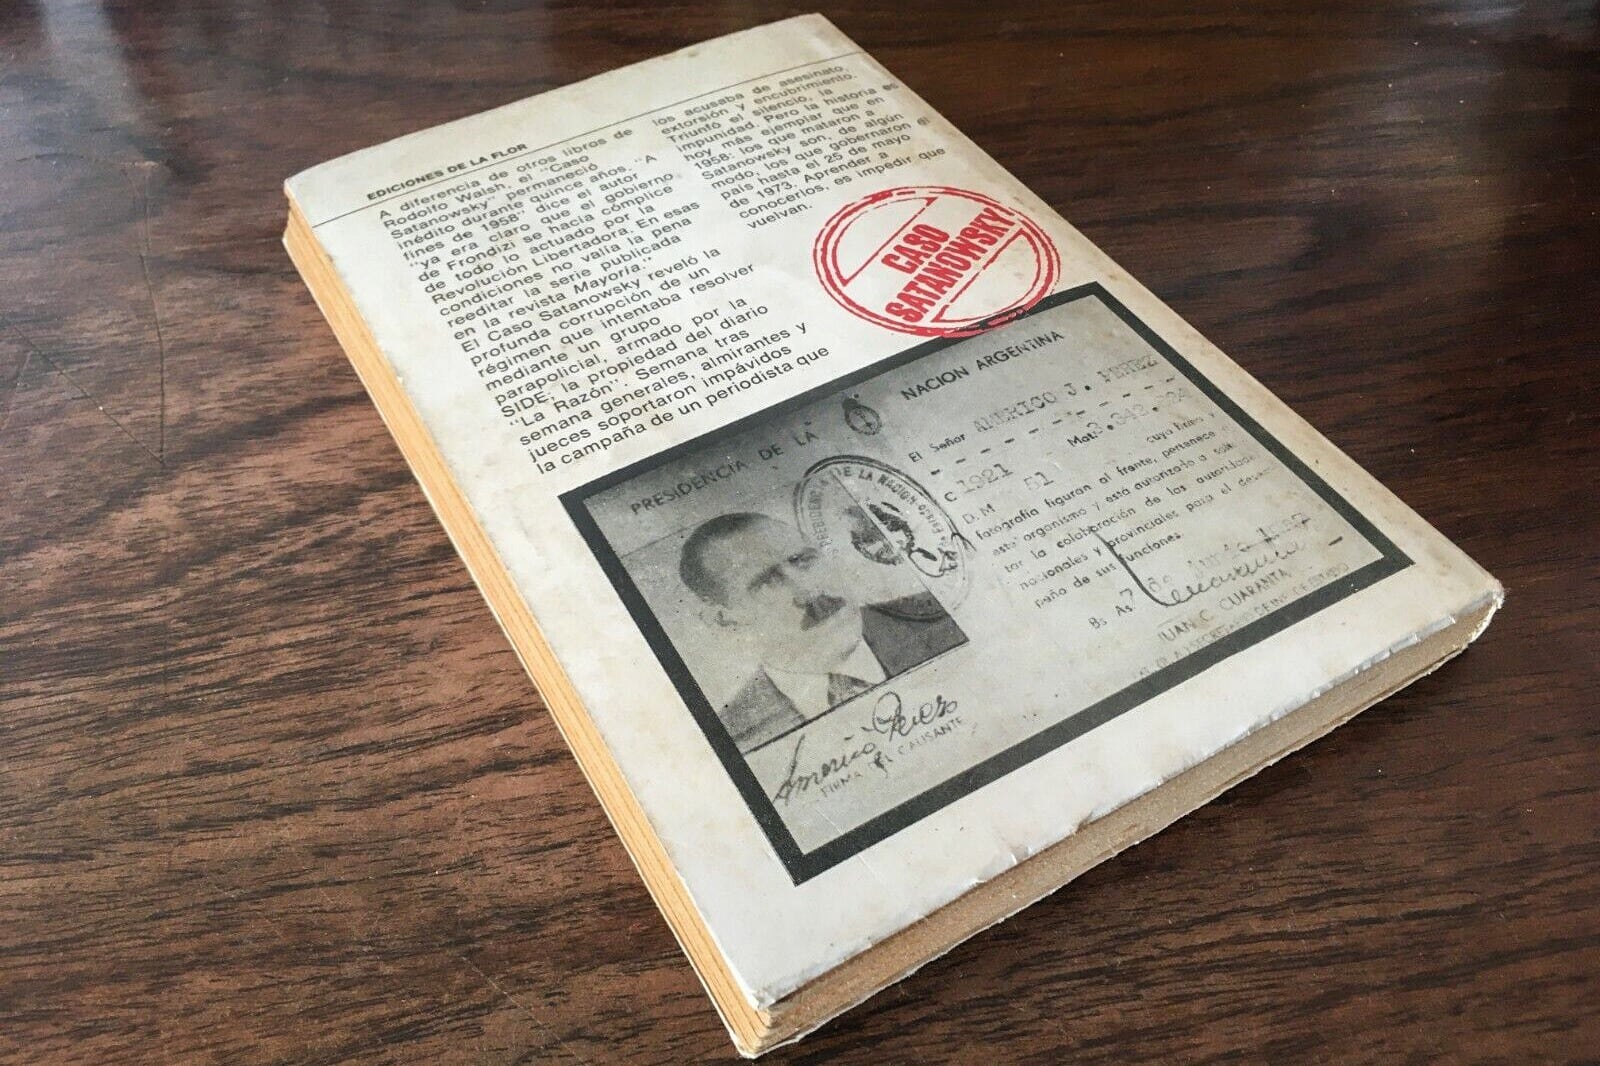 EDICIONES DE LA FLOR
A diferencia de otros libros de
Rodolfo Walsh, el "Caso
Satanowsky" permaneció
inédito durante quince años. "A
fines de 1958" dice el autor
"ya era claro que el gobierno
de Frondizi se hacía cómplice
de todo lo actuado por la
Revolución Libertadora. En esas
condiciones no valía la pena
reeditar la serie publicada
en la revista Mayoría."
El Caso Satanowsky reveló la
profunda corrupción de un
régimen que intentaba resolver
mediante un grupo
parapolicial, armado por la
SIDE, la propiedad del diario
"La Razón". Semana tras
semana generales, almirantes y
jueces soportaron impávidos
la campaña de un periodista que
los acusaba de asesinato,
extorsión y encubrimiento.
Triunfó el silencio, la
impunidad. Pero la historia es
hoy más ejemplar que en
1958: los que mataron a
Satanowsky son, de algún
modo, los que gobernaron el
país hasta el 25 de mayo
de 1973. Aprender a
conocerlos, es impedir que
vuelvan.
CASO
SATANOWSKY
PRESIDENCIA DE LA NACION ARGENTINA
PRESIDENCIA DE LA NACION
El Señor AMERICO J. PEREZ
C 1921 Mat.
D. M 51 cuya firma y
fotografía figuran al frente, pertenece a
este organismo y está autorizado a
tar la colaboración de las autoridades
nacionales y provinciales para el desem
peño de sus funciones.
Bs As 7 de
JUAN C. CUARANTA
Americo Perez
FIRMA DEL CAUSANTE